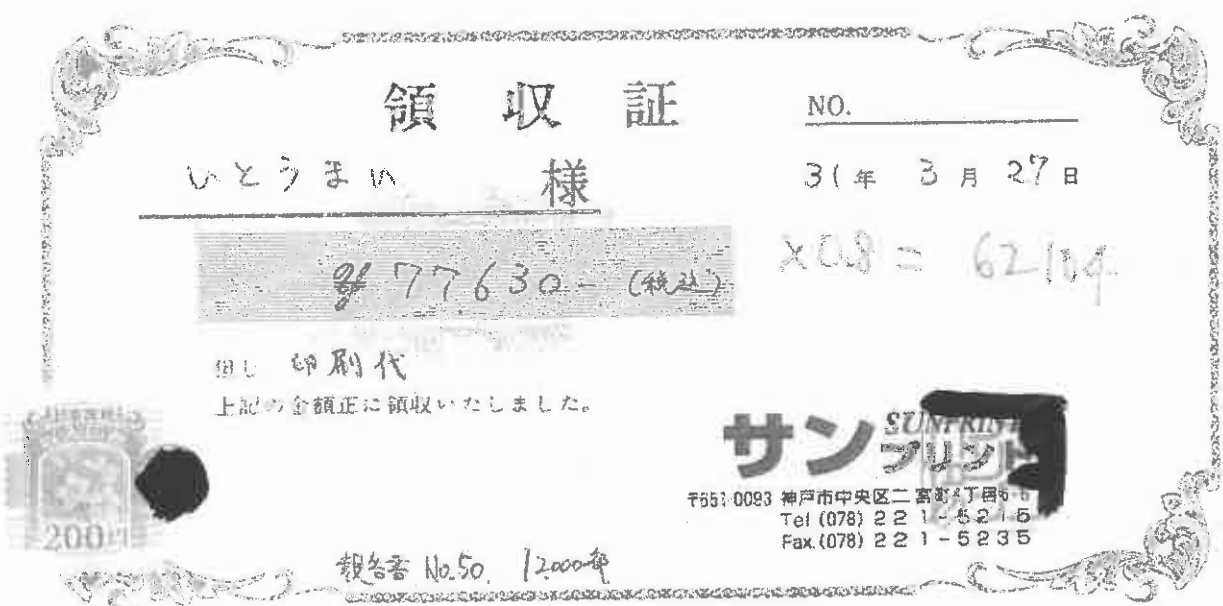 領収証
NO.
いとうまい 様
31年 3月 27日
¥77630-(税込)
×0.8 = 62104
但し 印刷代
上記の金額正に領収いたしました。
サンプリント
SUNPRINT
〒651-0093 神戸市中央区二宮町4丁目
Tel (078) 221-5215
Fax.(078) 221-5235
200円
報告書 No.50. 12000部